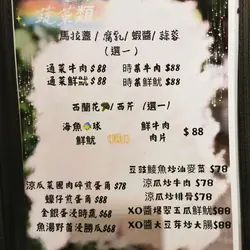 蔬菜類
馬拉盞/腐乳/蝦醬/蒜蓉
(選一)
通菜牛肉 $88 時菜牛肉 $88
通菜鮮魷 $88 時菜鮮魷 $88
西蘭花/西芹 (選一)
海魚球 鮮牛肉
鮮魷 肉片 $88
豆豉鯪魚炒油麥菜 $78
涼瓜炒牛肉 $78
涼瓜炒排骨 $78
涼瓜菜圃肉碎煎蛋角 $78
蠔仔煎蛋角 $88
XO醬爆翠玉瓜鮮魷 $88
金銀蛋浸時蔬 $68
XO醬大豆芽炒大腸 $88
魚湯野菌浸勝瓜 $68